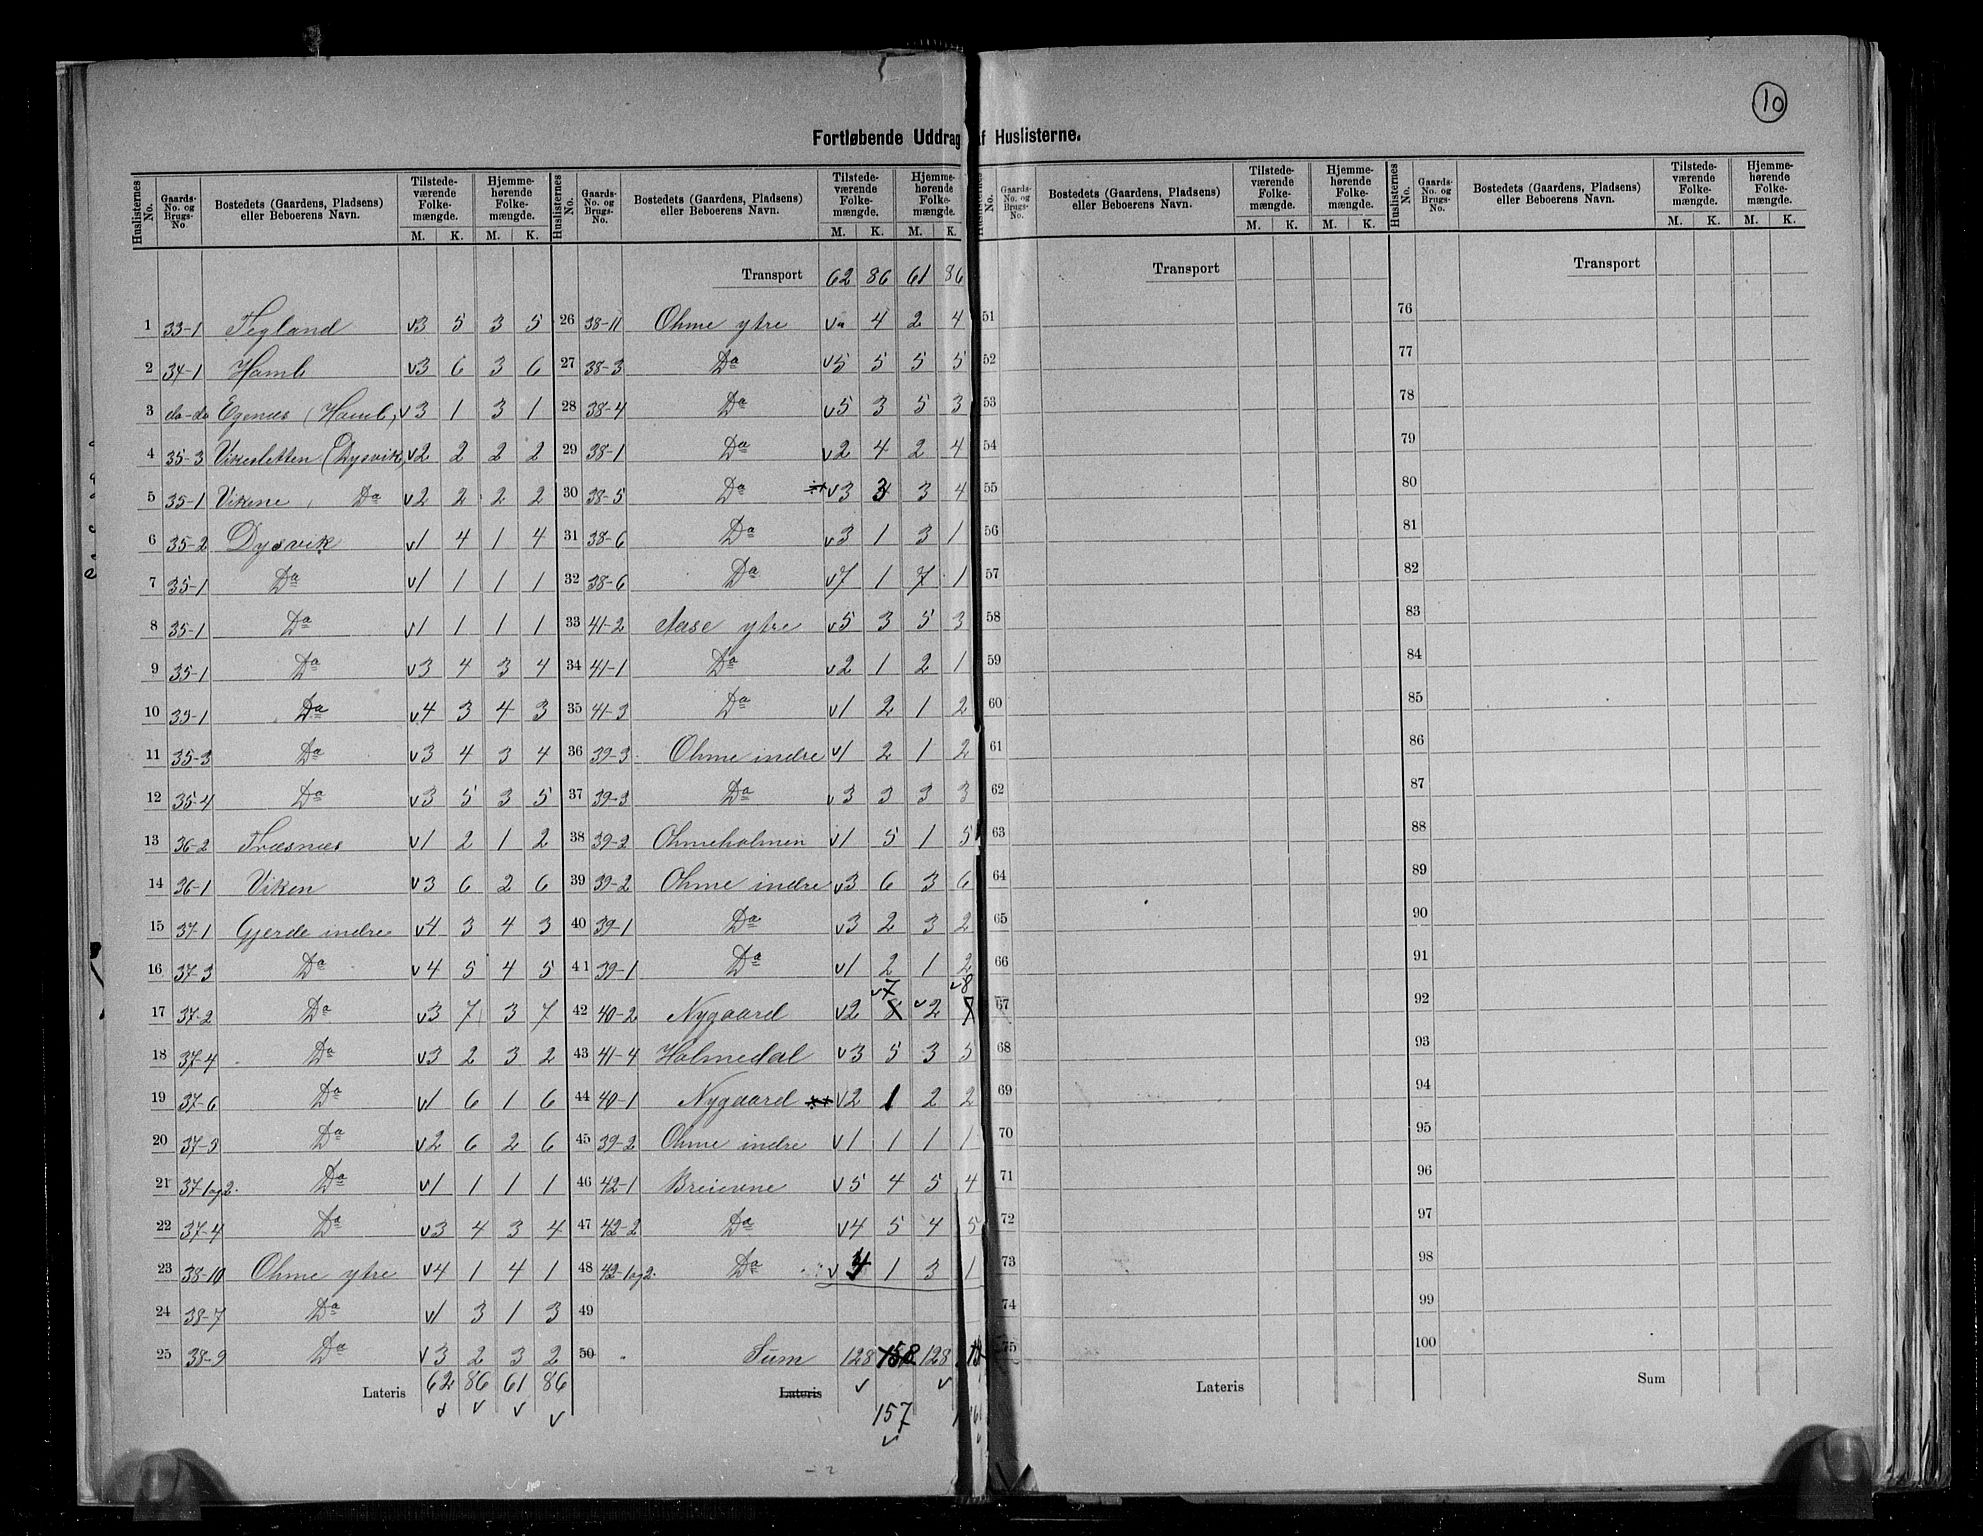 10
Fortløbende Uddrag af Huslisterne.
Huslisternes No. | Gaards-No. og Brugs-No. | Bostedets (Gaardens, Pladsens) eller Beboerens Navn. | Tilstedeværende Folkemængde. M. K. | Hjemmehørende Folkemængde. M. K.
1 33-1 Tegland v3 5 3 5
2 34-1 Hamb v3 6 3 6
3 do-do Egenæs (Hamb) v3 1 3 1
4 35-3 Vikesletten (Dysvik) v2 2 2 2
5 35-1 Vikene, Da v2 2 2 2
6 35-2 Dysvik v1 4 1 4
7 35-1 Da v1 1 1 1
8 35-1 Da v1 1 1 1
9 35-1 Da v3 4 3 4
10 35-1 Da v4 3 4 3
11 35-3 Da v3 4 3 4
12 35-4 Da v3 5 3 5
13 36-2 Træsnæs v1 2 1 2
14 36-1 Viken v3 6 2 6
15 37-1 Gjerde indre v4 3 4 3
16 37-3 Da v4 5 4 5
17 37-2 Da v3 7 3 7
18 37-4 Da v3 2 3 2
19 37-6 Da v1 6 1 6
20 37-3 Da v2 6 2 6
21 37-1og2. Da v1 1 1 1
22 37-4 Da v3 4 3 4
23 38-10 Ohme ytre v4 1 4 1
24 38-7 Da v1 3 1 3
25 38-9 Da v3 2 3 2
Lateris 62 86 61 86
Huslisternes No. | Gaards-No. og Brugs-No. | Bostedets (Gaardens, Pladsens) eller Beboerens Navn. | Tilstedeværende Folkemængde. M. K. | Hjemmehørende Folkemængde. M. K.
Transport 62 86 61 86
26 38-11 Ohme ytre v 4 2 4
27 38-3 Da v5 5 5 5
28 38-4 Da v5 3 5 3
29 38-1 Da v2 4 2 4
30 38-5 Da v3 3 3 4
31 38-6 Da v3 1 3 1
32 38-6 Da v7 1 7 1
33 41-2 Aase ytre v5 3 5 3
34 41-1 Da v2 1 2 1
35 41-3 Da v1 2 1 2
36 39-3. Ohme indre v1 2 1 2
37 39-3 Da v3 3 3 3
38 39-2 Ohmeholmen v1 5 1 5
39 39-2 Ohme indre v3 6 3 6
40 39-1 Da v3 2 3 2
41 39-1 Da v1 2 1 2
v7 v8
42 40-2 Nygaard v2 8 v2 7
43 41-4 Holmedal v3 5 3 5
44 40-1 Nygaard v2 1 2 2
45 39-2 Ohme indre v1 1 1 1
46 42-1 Breievne v5 4 5 4
47 42-2 Da v4 5 4 5
48 42-1og2. Da v 1 3 1
49
50 Sum 128 158 128
Lateris
157
Huslisternes No. | Gaards-No. og Brugs-No. | Bostedets (Gaardens, Pladsens) eller Beboerens Navn. | Tilstedeværende Folkemængde. M. K. | Hjemmehørende Folkemængde. M. K.
Transport
51
52
53
54
55
56
57
58
59
60
61
62
63
64
65
66
67
68
69
70
71
72
73
74
75
Lateris
Huslisternes No. | Gaards-No. og Brugs-No. | Bostedets (Gaardens, Pladsens) eller Beboerens Navn. | Tilstedeværende Folkemængde. M. K. | Hjemmehørende Folkemængde. M. K.
Transport
76
77
78
79
80
81
82
83
84
85
86
87
88
89
90
91
92
93
94
95
96
97
98
99
100
Sum